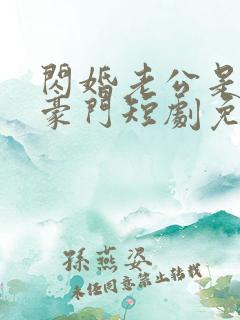 閃婚老公是
豪門短劇免
孫燕姿
未经同意禁止转载